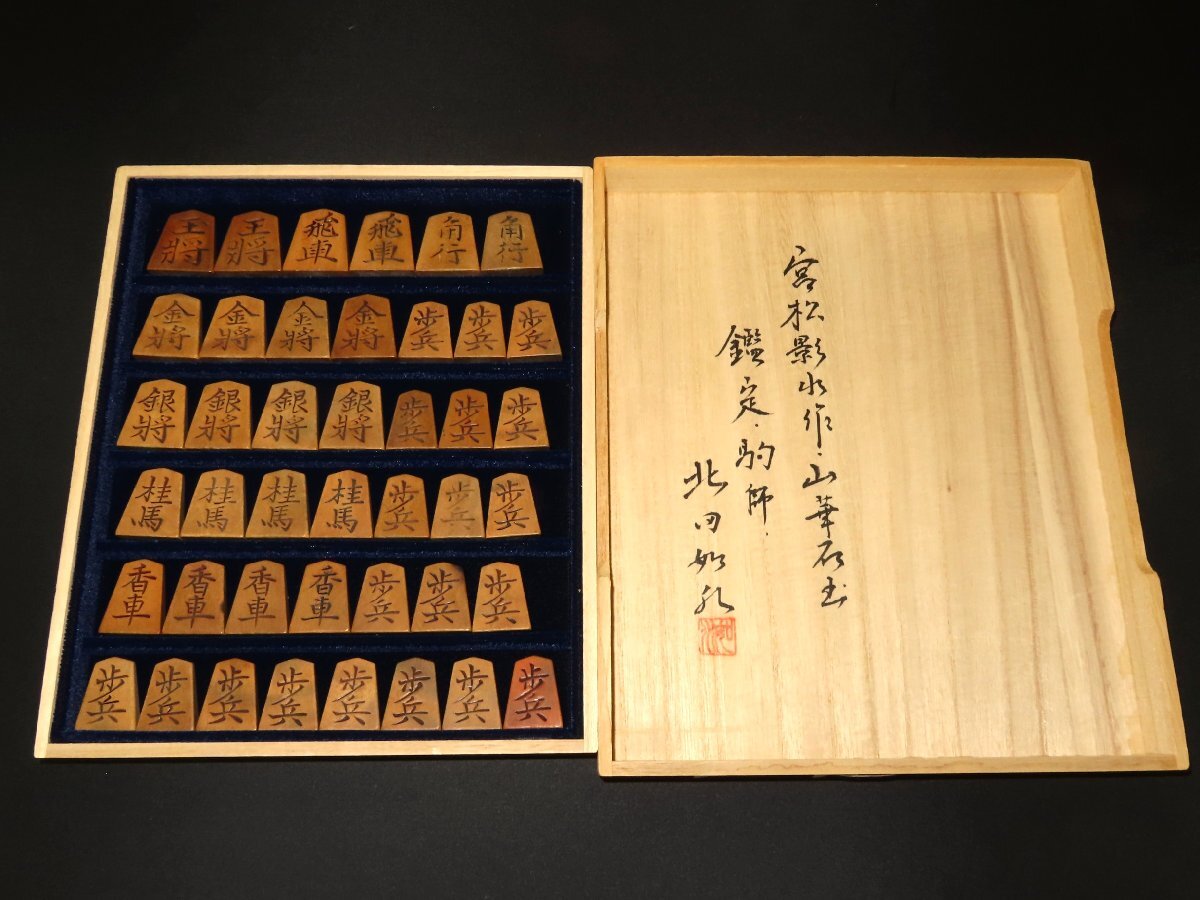 王將 王將 飛車 飛車 角行 角行
金將 金將 金將 金將 歩兵 歩兵 歩兵
銀將 銀將 銀將 銀將 歩兵 歩兵 歩兵
桂馬 桂馬 桂馬 桂馬 歩兵 歩兵 歩兵
香車 香車 香車 香車 歩兵 歩兵 歩兵
歩兵 歩兵 歩兵 歩兵 歩兵 歩兵 歩兵 歩兵
宮松影水作・山華石
鑑定・駒師・
北田如水